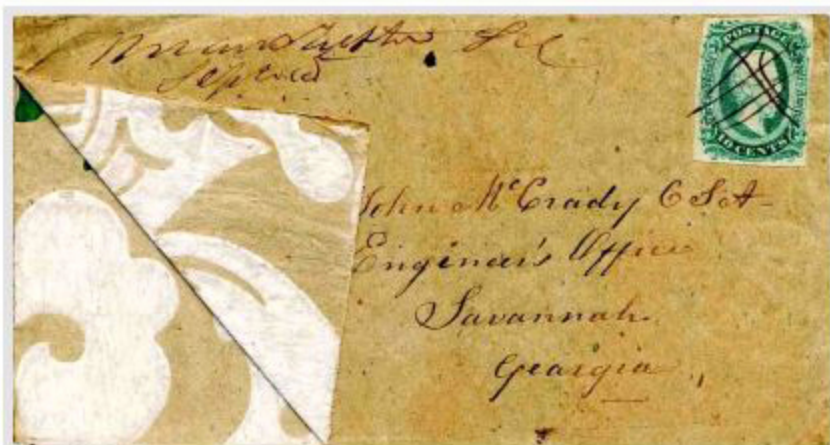 Sept
POSTAGE
10 CENTS
John McCrady C S A
Engineer's Office
Savannah
Georgia